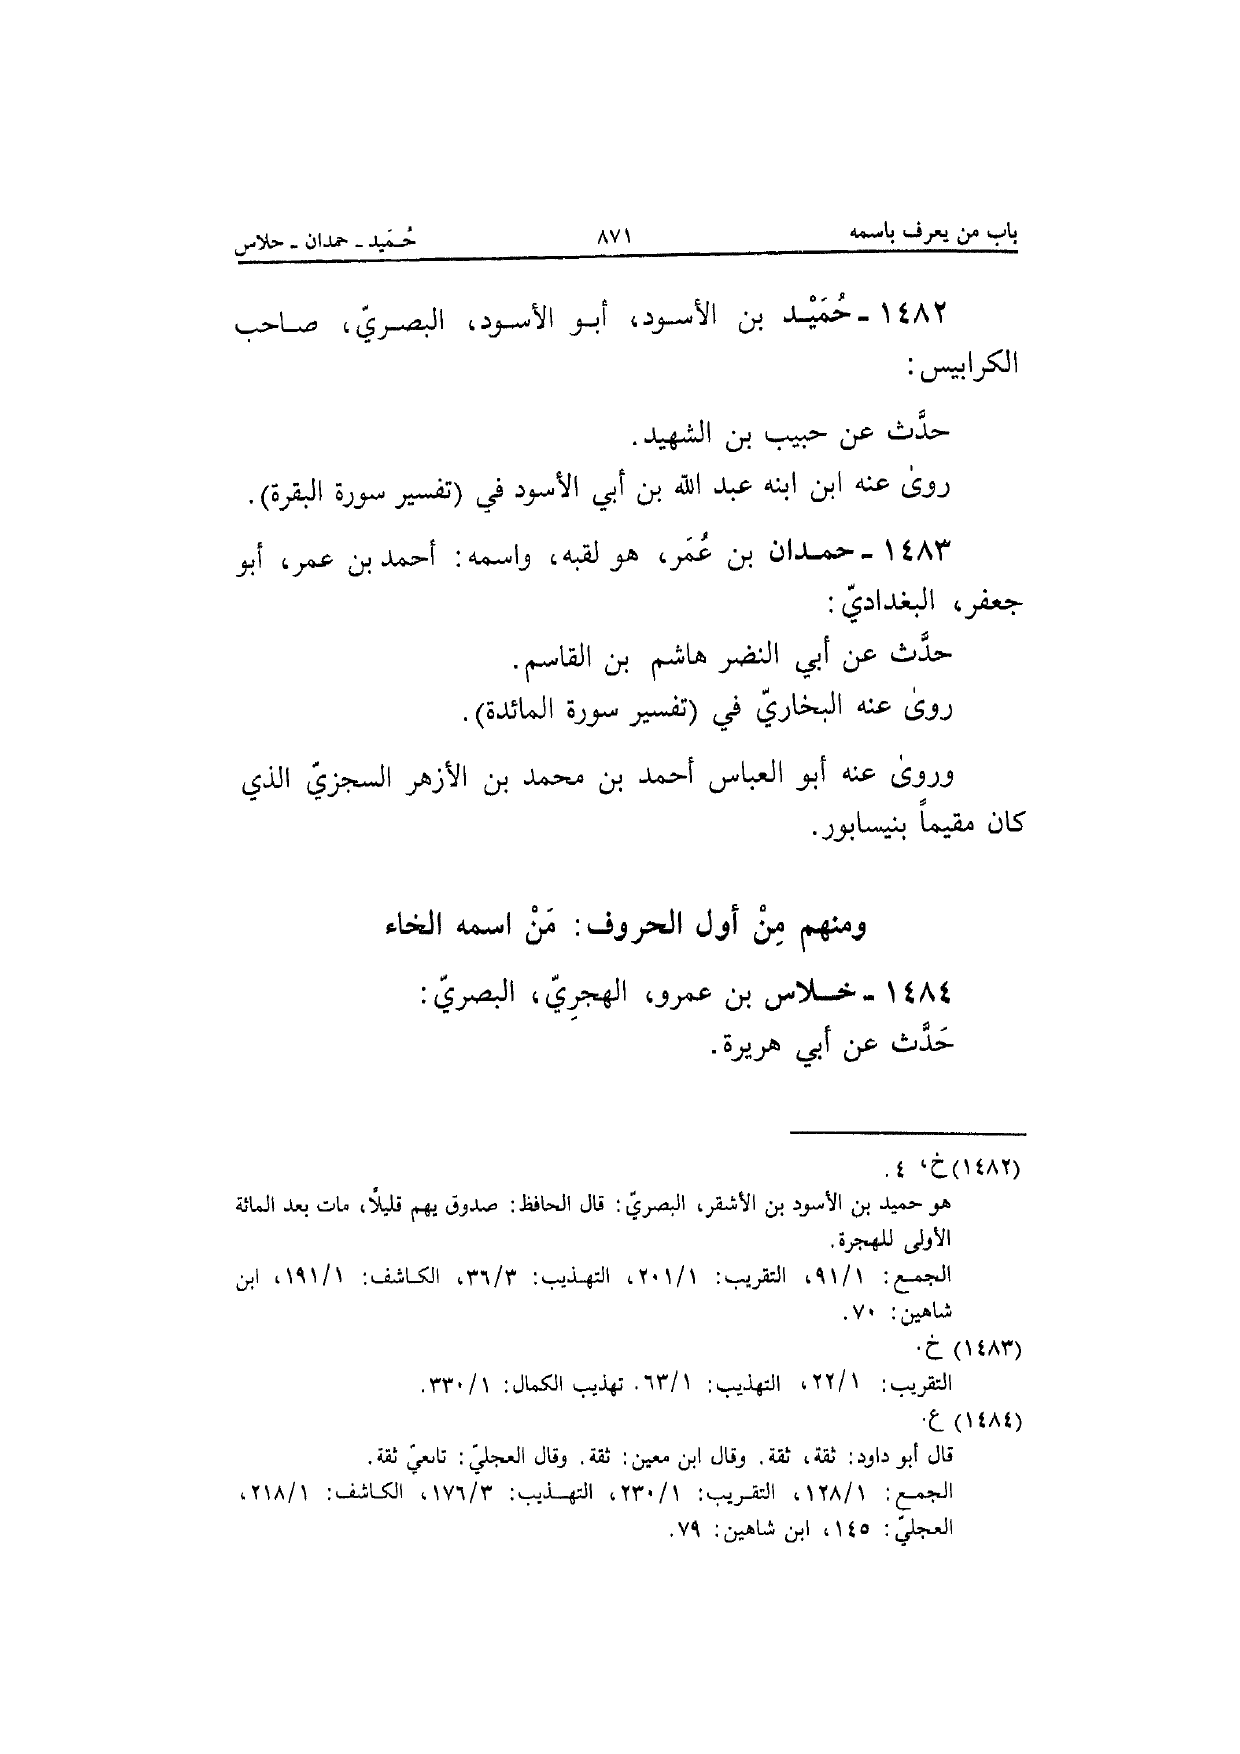 باب من يعرف باسمه ٨٧١ حُـمَيد ـ حمدان ـ حلاس
١٤٨٢ ـ حُمَيْـد بن الأسـود، أبـو الأسـود، البصـريّ، صـاحب
الكرابيس:
حدَّث عن حبيب بن الشهيد.
روىٰ عنه ابن ابنه عبد الله بن أبي الأسود في (تفسير سورة البقرة).
١٤٨٣ ـ حمـدان بن عُمَر، هو لقبه، واسمه: أحمد بن عمر، أبو
جعفر، البغداديّ:
حدَّث عن أبي النضر هاشم بن القاسم.
روىٰ عنه البخاريّ في (تفسير سورة المائدة).
وروىٰ عنه أبو العباس أحمد بن محمد بن الأزهر السجزيّ الذي
كان مقيماً بنيسابور.
ومنهم مِنْ أول الحروف: مَنْ اسمه الخاء
١٤٨٤ ـ خـلاس بن عمرو، الهجرِيّ، البصريّ:
حَدَّث عن أبي هريرة.
(١٤٨٢) خ، ٤.
هو حميد بن الأسود بن الأشقر، البصريّ: قال الحافظ: صدوق يهم قليلًا، مات بعد المائة
الأولى للهجرة.
الجمـع: ٩١/١، التقريب: ٢٠١/١، التهـذيب: ٣٦/٣، الكـاشف: ١٩١/١، ابن
شاهين: ٧٠.
(١٤٨٣) خ.
التقريب: ٢٢/١، التهذيب: ٦٣/١. تهذيب الكمال: ٣٣٠/١.
(١٤٨٤) ع.
قال أبو داود: ثقة، ثقة. وقال ابن معين: ثقة. وقال العجليّ: تابعيّ ثقة.
الجمـع: ١٢٨/١، التقـريب: ٢٣٠/١، التهـذيب: ١٧٦/٣، الكـاشف: ٢١٨/١،
العجليّ: ١٤٥، ابن شاهين: ٧٩.